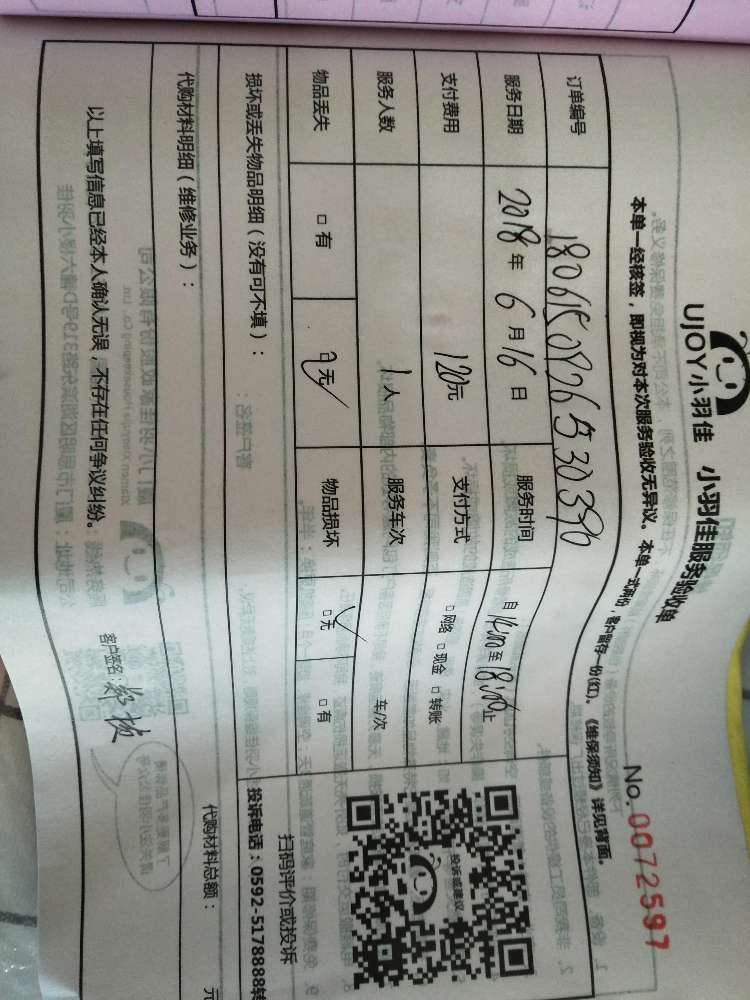 UJOY小羽佳 小羽佳服务验收单
No. 0072597
本单一经核签，即视为对本次服务验收无异议。本单一式两份，客户留存一份(红)。《维保须知》详见背面。
订单编号
服务日期 2018年6月16日 服务时间 自14:00至18:00止
支付费用 120元 支付方式 □网络 □现金 □转账
服务人数 1人 服务车次 车/次
物品丢失 □有 □无 物品损坏 □无 □有
投诉或建议
扫码评价或投诉
投诉电话：0592-5178888转
损坏或丢失物品明细（没有可不填）：
代购材料明细（维修业务）： 代购材料总额： 元
以上填写信息已经本人确认无误，不存在任何争议纠纷。 客户签名：